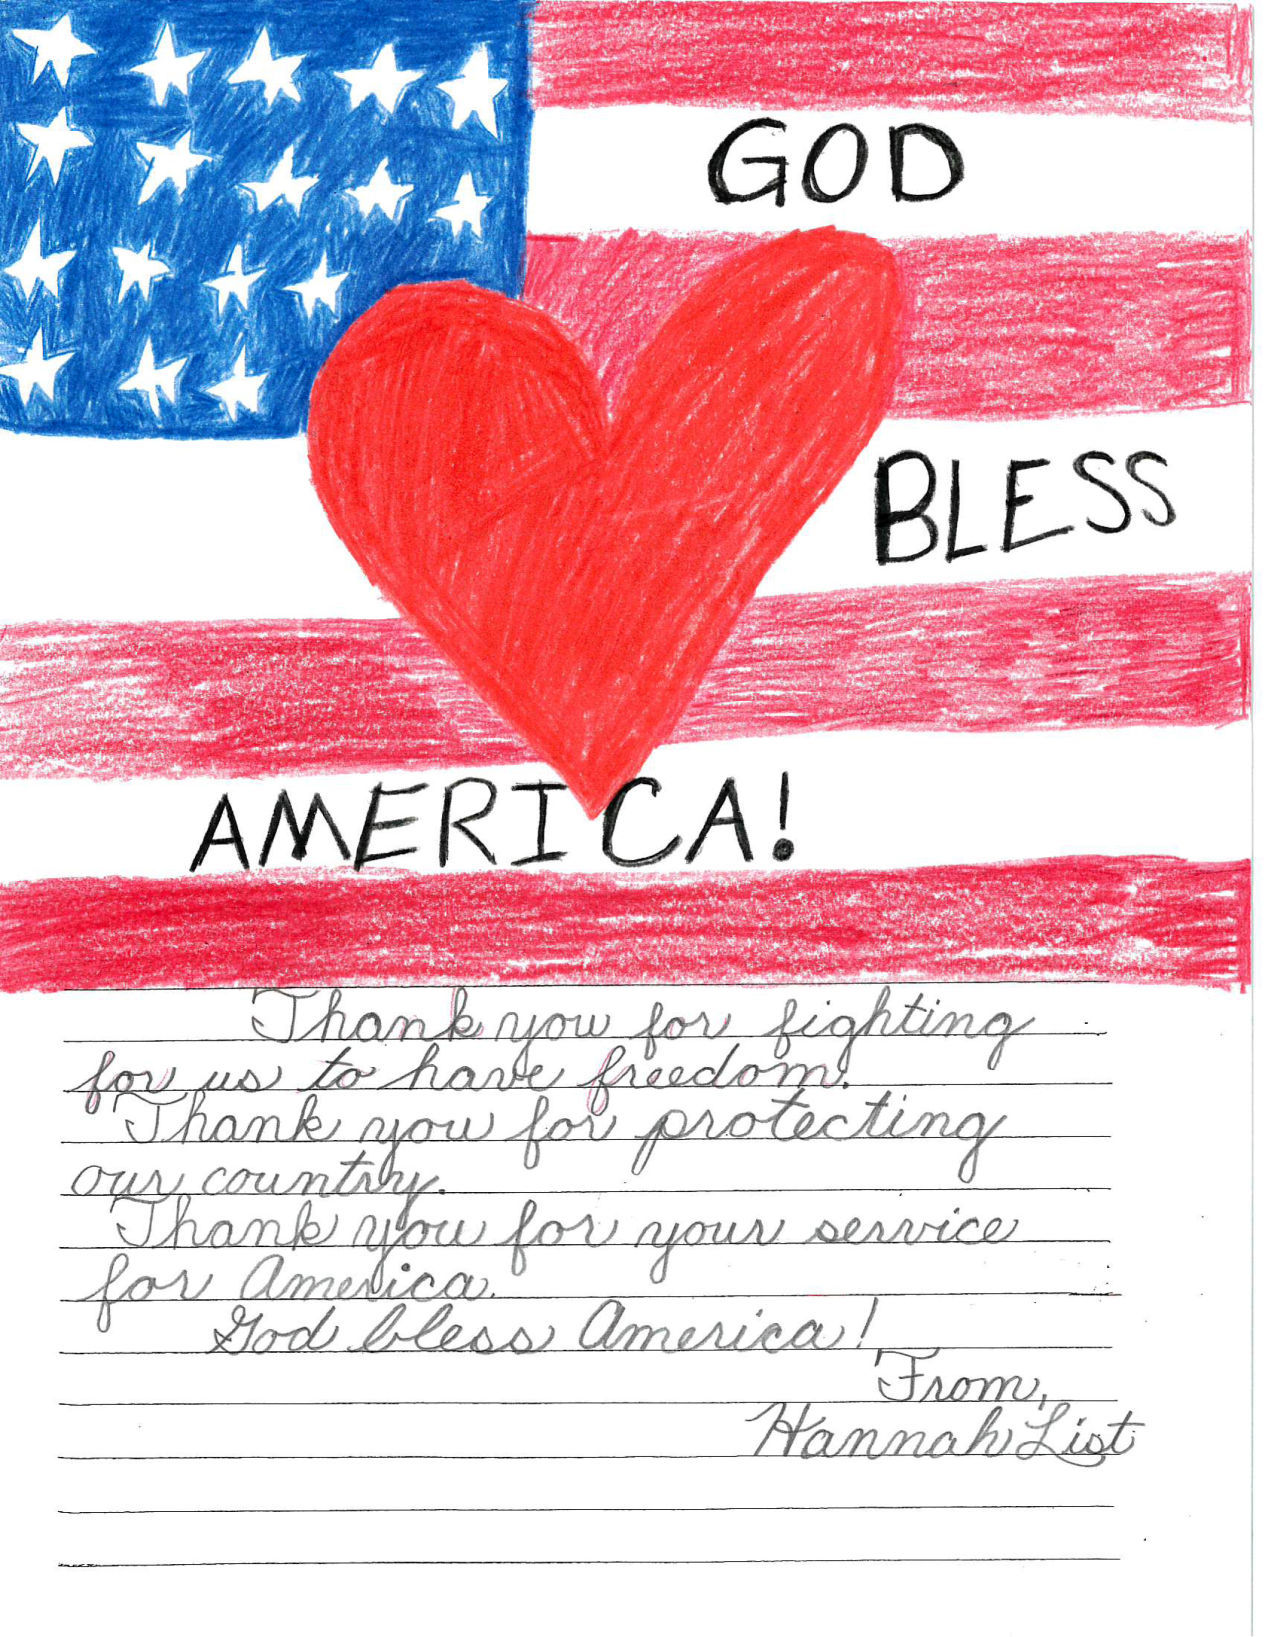 GOD
BLESS
AMERICA!
Thank you for fighting
for us to have freedom.
Thank you for protecting
our country.
Thank you for your service
for America.
God bless America!
From,
Hannah List